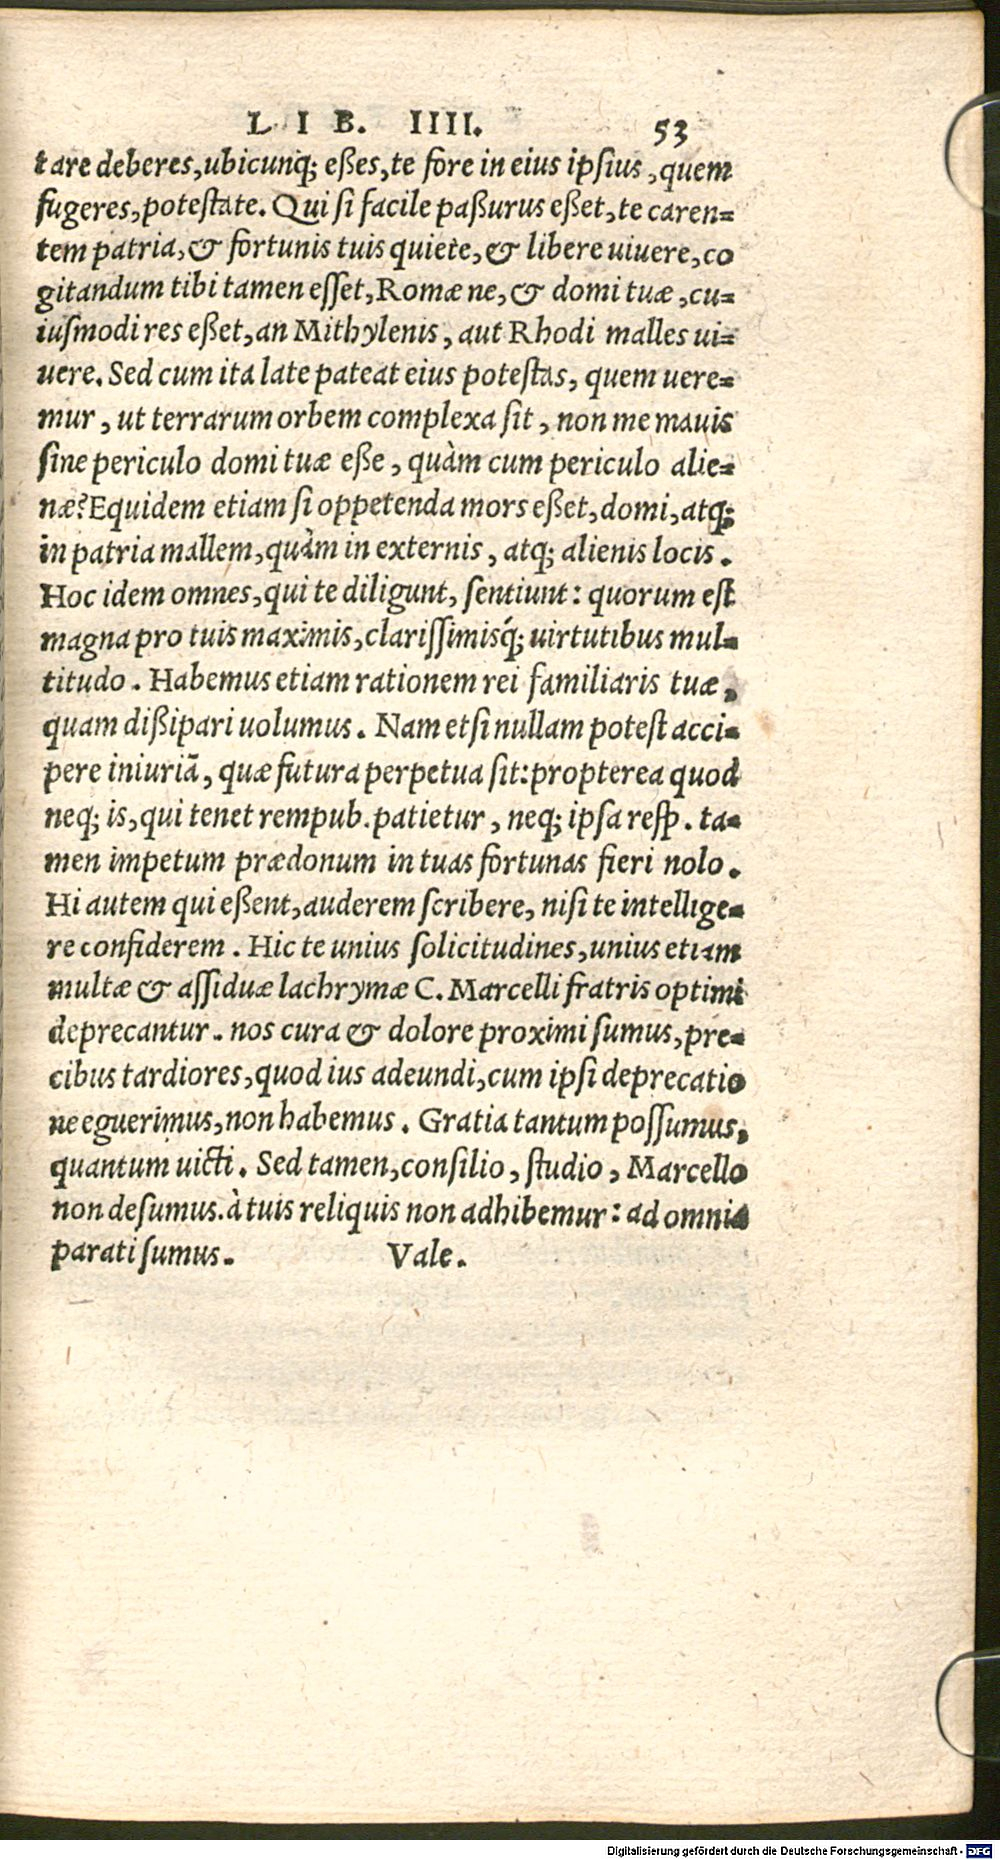 LIB. IIII. 53
tare deberes, ubicunq; eßes, te fore in eius ipsius, quem
fugeres, potestate. Qui si facile paßurus eßet, te caren=
tem patria, & fortunis tuis quiete, & libere uiuere, co
gitandum tibi tamen esset, Romæ ne, & domi tuæ, cu=
iusmodi res eßet, an Mithylenis, aut Rhodi malles ui=
uere. Sed cum ita late pateat eius potestas, quem uere=
mur, ut terrarum orbem complexa sit, non me mauis
sine periculo domi tuæ eße, quàm cum periculo alie=
næ? Equidem etiam si oppetenda mors eßet, domi, atq;
in patria mallem, quàm in externis, atq; alienis locis.
Hoc idem omnes, qui te diligunt, sentiunt: quorum est
magna pro tuis maximis, clarissimisq́; uirtutibus mul=
titudo. Habemus etiam rationem rei familiaris tuæ,
quam dißipari uolumus. Nam etsi nullam potest acci=
pere iniuriã, quæ futura perpetua sit: propterea quod
neq; is, qui tenet rempub. patietur, neq; ipsa resp. ta=
men impetum prædonum in tuas fortunas fieri nolo.
Hi autem qui eßent, auderem scribere, nisi te intellige=
re confiderem. Hic te unius solicitudines, unius etiam
multæ & assiduæ lachrymæ C. Marcelli fratris optimi
deprecantur. nos cura & dolore proximi sumus, pre=
cibus tardiores, quod ius adeundi, cum ipsi deprecatio
ne eguerimus, non habemus. Gratia tantum possumus,
quantum uicti. Sed tamen, consilio, studio, Marcello
non desumus. à tuis reliquis non adhibemur: ad omnia
parati sumus. Vale.
Digitalisierung gefördert durch die Deutsche Forschungsgemeinschaft - DFG